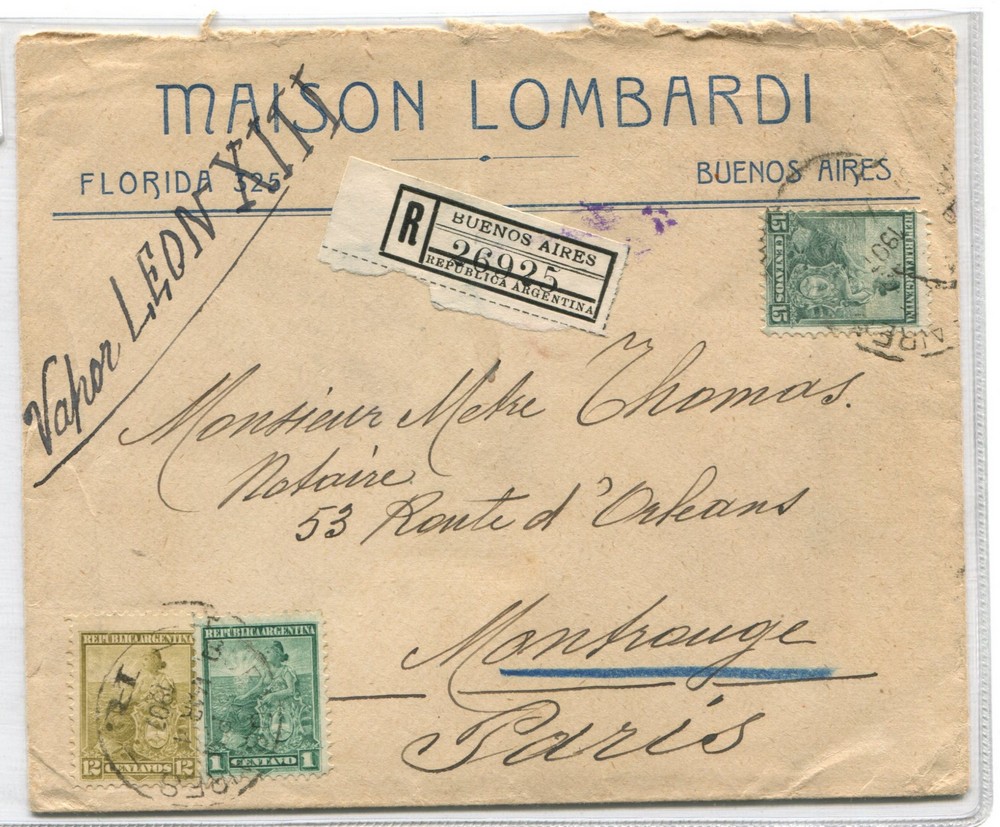 MAISON LOMBARDI
FLORIDA 325
BUENOS AIRES
Vapor LEON XIII
R
BUENOS AIRES
26925
REPÚBLICA ARGENTINA
REPUBLICA ARGENTINA
15 CENTAVOS 15
AIRES
Monsieur Metre Thomas.
Notaire
53 Route d'Orleans
Montrouge
Paris
REPUBLICA ARGENTINA
12 CENTAVOS 12
REPUBLICA ARGENTINA
1 CENTAVO 1